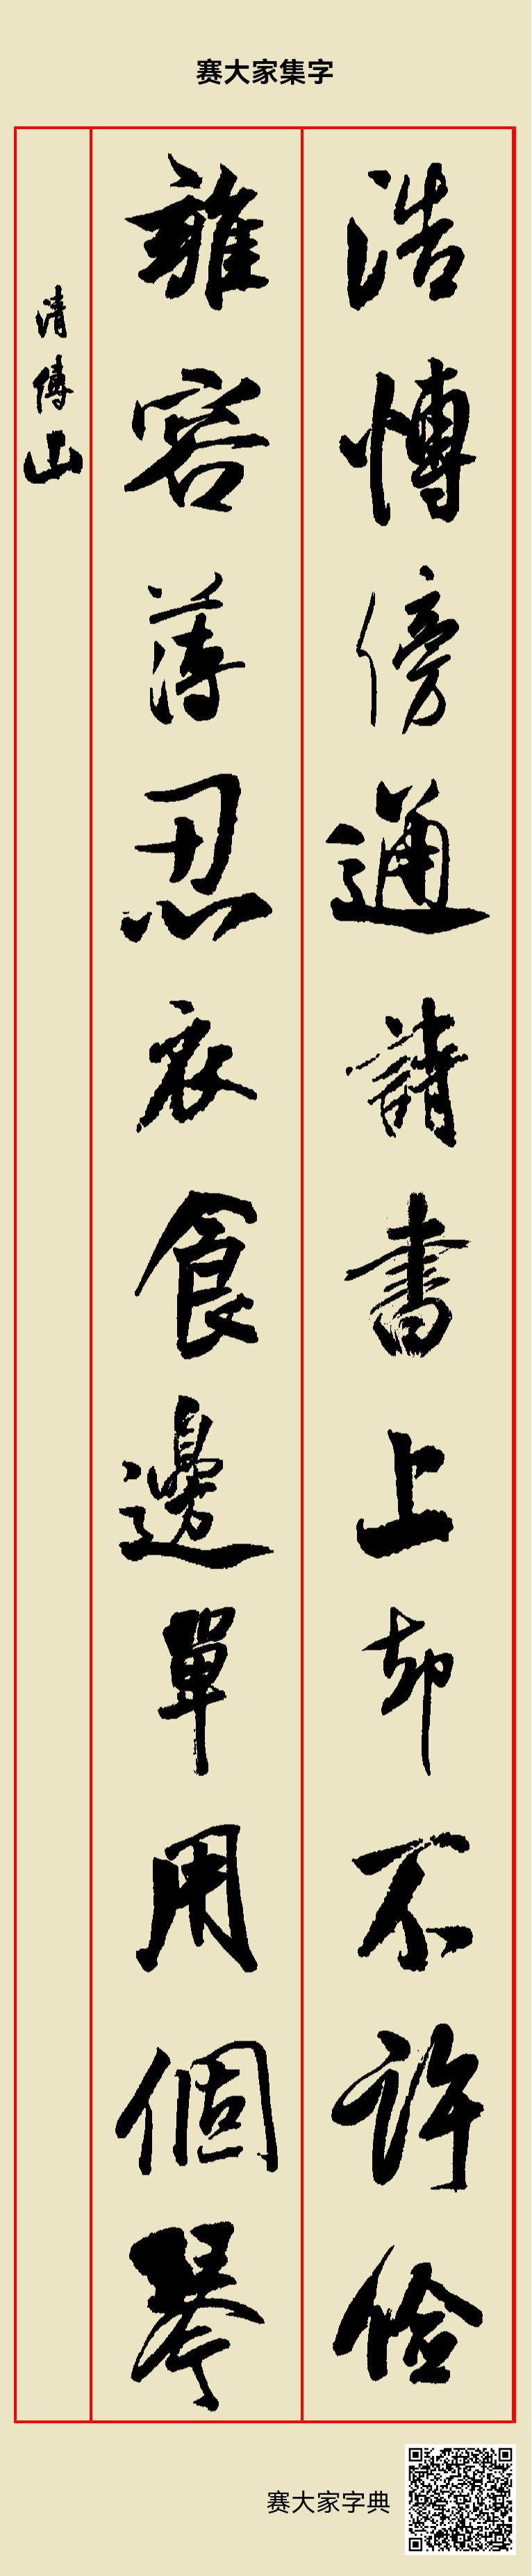 赛大家集字
浩愽傍通請書上却不許儉
雍容薄忍衣食邊單用個琴
清傅山
赛大家字典